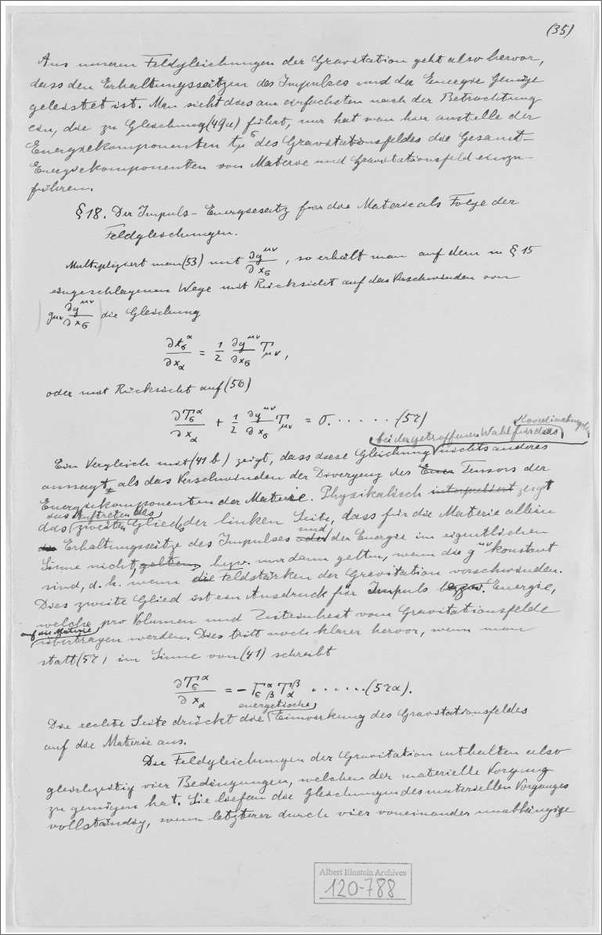 (35)
Aus unseren Feldgleichungen der Gravitation geht also hervor,
dass den Erhaltungssätzen des Impulses und der Energie Genüge
geleistet ist. Man sieht dies am einfachsten nach der Betrachtung
ein, die zu Gleichung (49a) führt, nur hat man hier anstelle der
Energiekomponenten t_μ^σ des Gravitationsfeldes die Gesamt-
Energiekomponenten von Materie und Gravitationsfeld einzu-
führen.
§18. Der Impuls-Energiesatz für die Materie als Folge der
Feldgleichungen.
Multipliziert man (53) mit ∂g^μν/∂x_σ, so erhält man auf dem in §15
eingeschlagenen Wege mit Rücksicht auf das Verschwinden von
g_μν ∂g^μν/∂x_σ die Gleichung
∂t_σ^α/∂x_α = 1/2 ∂g^μν/∂x_σ T_μν,
oder mit Rücksicht auf (56)
∂T_σ^α/∂x_α + 1/2 ∂g^μν/∂x_σ T_μν = 0. . . . . . (57)
bei der getroffenen Wahl für das Koordinatensystem
Ein Vergleich mit (41b) zeigt, dass diese Gleichung nichts anderes
aussagt, als das Verschwinden der Divergenz des Tensors der
Energiekomponenten der Materie. Physikalisch interpretiert zeigt
das Auftreten des
das zweiten Gliedes der linken Seite, dass für die Materie allein
Erhaltungssätze des Impulses und oder der Energie im eigentlichen
Sinne nicht gelten, bezw. nur dann gelten, wenn die g^μν konstant
sind, d.h. wenn die Feldstärken der Gravitation verschwinden.
Dies zweite Glied ist ein Ausdruck für Impuls bezw. Energie,
welche pro Volumen und Zeiteinheit vom Gravitationsfelde
auf die Materie
übertragen werden. Dies tritt noch klarer hervor, wenn man
statt (57) im Sinne von (41) schreibt
∂T_σ^α/∂x_α = − Γ_σβ^α T_α^β . . . . . . (57a).
energetische
Die rechte Seite drückt die Einwirkung des Gravitationsfeldes
auf die Materie aus.
Die Feldgleichungen der Gravitation enthalten also
gleichzeitig vier Bedingungen, welchen der materielle Vorgang
zu genügen hat. Sie liefern die Gleichungen des materiellen Vorganges
vollständig, wenn letzterer durch vier voneinander unabhängige
Albert Einstein Archives
120-788